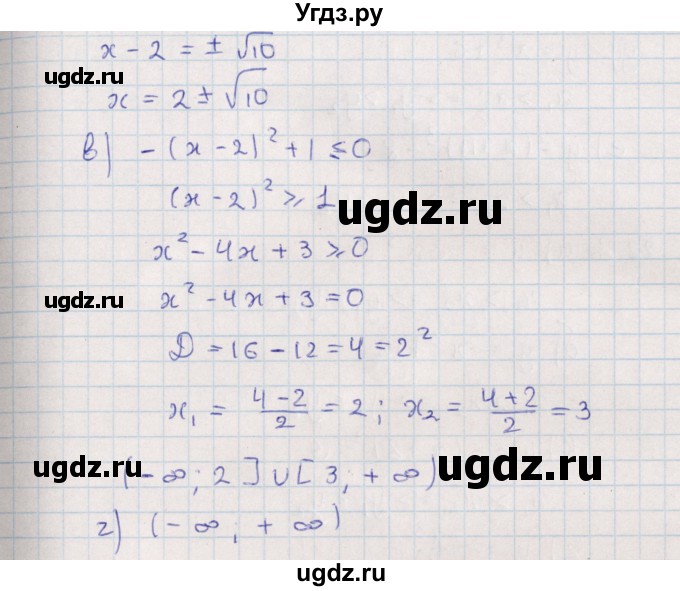 Угдз.ру
x - 2 = ± √10
ugdz.ru
x = 2 ± √10
в) -(x - 2)² + 1 ≤ 0
(x - 2)² ⩾ 1
ugdz.ru
x² - 4x + 3 ⩾ 0
ugdz.ru
x² - 4x + 3 = 0
D = 16 - 12 = 4 = 2²
x₁ = (4 - 2)/2 = 2; x₂ = (4 + 2)/2 = 3
ugdz.ru
(-∞; 2] ∪ [3; +∞)
ugdz.ru
г) (-∞; +∞)
ugdz.ru